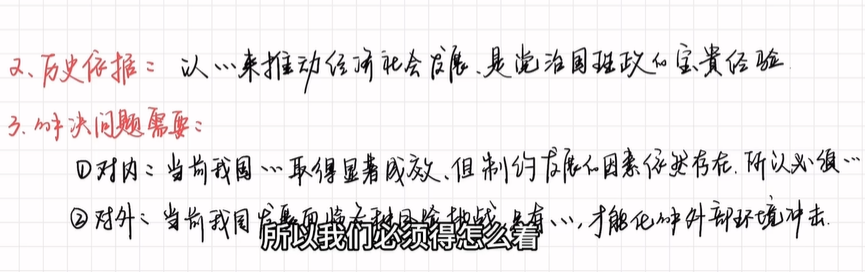 2、历史依据：以…来推动经济社会发展、是党治国理政的宝贵经验
3.解决问题需要：
①对内：当前我国…取得显著成效、但制约发展的因素依然存在.所以必须…
②对外：当前我国发展面临各种风险挑战,只有…,才能化解外部环境冲击.
所以我们必须得怎么着